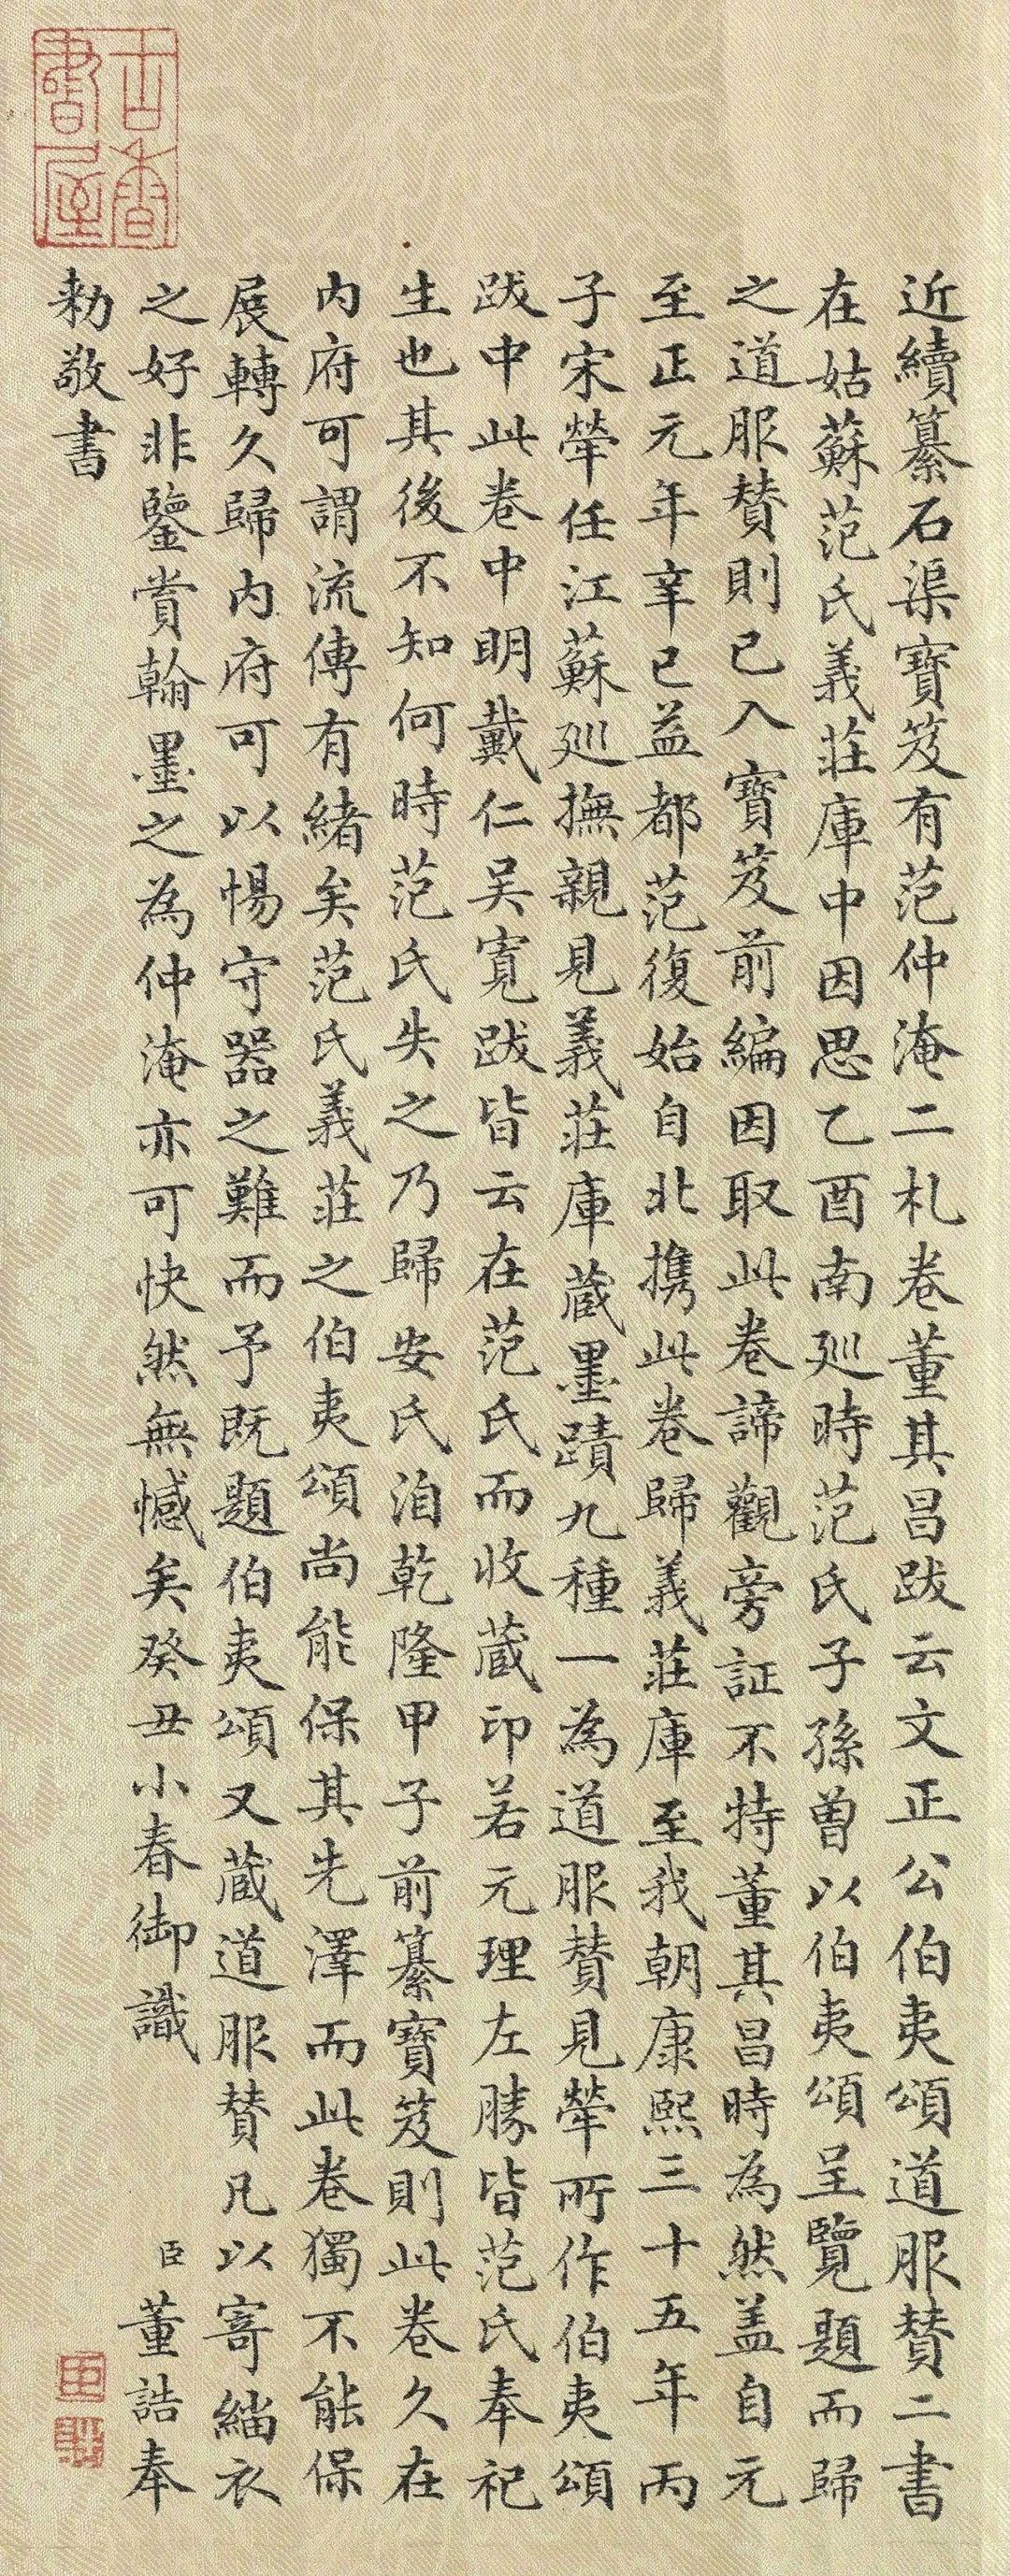 近續纂石渠寶笈有范仲淹二札卷董其昌跋云文正公伯夷頌道服賛二書
在姑蘇范氏義莊庫中因思乙酉南廵時范氏子孫曾以伯夷頌呈覽題而歸
之道服賛則已入寶笈前編因取此卷諦觀旁証不特董其昌時為然盖自元
至正元年辛巳益都范復始自北携此卷歸義莊庫至我朝康熙三十五年丙
子宋犖任江蘇廵撫親見義莊庫蔵墨蹟九種一為道服賛見犖所作伯夷頌
跋中此卷中明戴仁吴寛跋皆云在范氏而收蔵印若元理左勝皆范氏奉祀
生也其後不知何時范氏失之乃歸安氏洎乾隆甲子前纂寶笈則此卷久在
内府可謂流傳有緒矣范氏義莊之伯夷頌尚能保其先澤而此卷獨不能保
展轉久歸内府可以惕守器之難而予既題伯夷頌又蔵道服賛凡以寄緇衣
之好非鑒賞翰墨之為仲淹亦可快然無憾矣癸丑小春御識 臣董誥奉
勅敬書
古香書屋
臣
誥